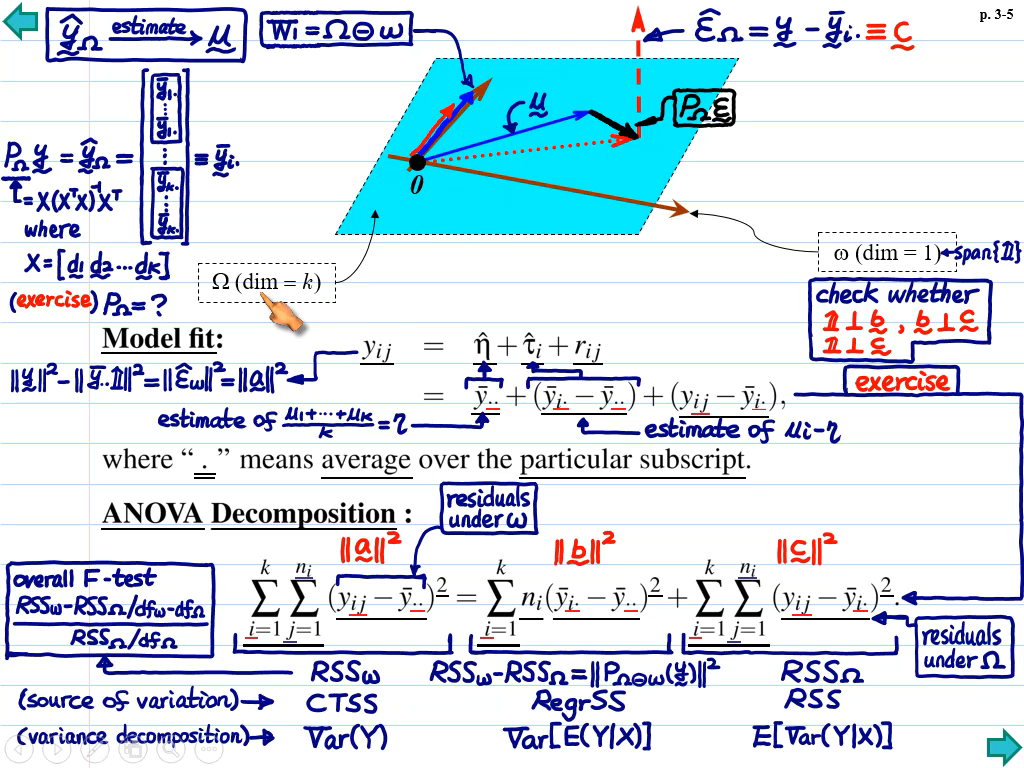 p. 3-5
ŷ_Ω estimate → μ
W₁ = Ω ⊖ ω
ε̂_Ω = y − ȳᵢ. ≡ c
μ
P_Ω ε
0
P_Ω y = ŷ_Ω = [ȳ₁. ⋮ ȳ₁. ⋮ ȳₖ. ⋮ ȳₖ.] ≡ ȳᵢ.
= X(XᵀX)⁻¹Xᵀ
where
X = [d₁ d₂ ⋯ dₖ]
(exercise) P_Ω = ?
Ω (dim = k)
ω (dim = 1) ← span{𝟙}
check whether
𝟙 ⊥ b , b ⊥ c
𝟙 ⊥ c
exercise
Model fit:
y_ij = η̂ + τ̂ᵢ + r_ij
‖y‖² − ‖ȳ..𝟙‖² = ‖ε̂_ω‖² = ‖a‖²
= ȳ.. + (ȳᵢ. − ȳ..) + (y_ij − ȳᵢ.),
estimate of (μ₁+⋯+μₖ)/k = η
estimate of μᵢ − η
where “ . ” means average over the particular subscript.
ANOVA Decomposition :
residuals
under ω
‖a‖² ‖b‖² ‖c‖²
overall F-test
RSS_ω − RSS_Ω / df_ω − df_Ω
RSS_Ω / df_Ω
∑_{i=1}^{k} ∑_{j=1}^{nᵢ} (y_ij − ȳ..)² = ∑_{i=1}^{k} nᵢ(ȳᵢ. − ȳ..)² + ∑_{i=1}^{k} ∑_{j=1}^{nᵢ} (y_ij − ȳᵢ.)².
residuals
under Ω
RSS_ω RSS_ω − RSS_Ω = ‖P_{Ω⊖ω}(y)‖² RSS_Ω
(source of variation) → CTSS RegrSS RSS
(variance decomposition) → Var(Y) Var[E(Y|X)] E[Var(Y|X)]